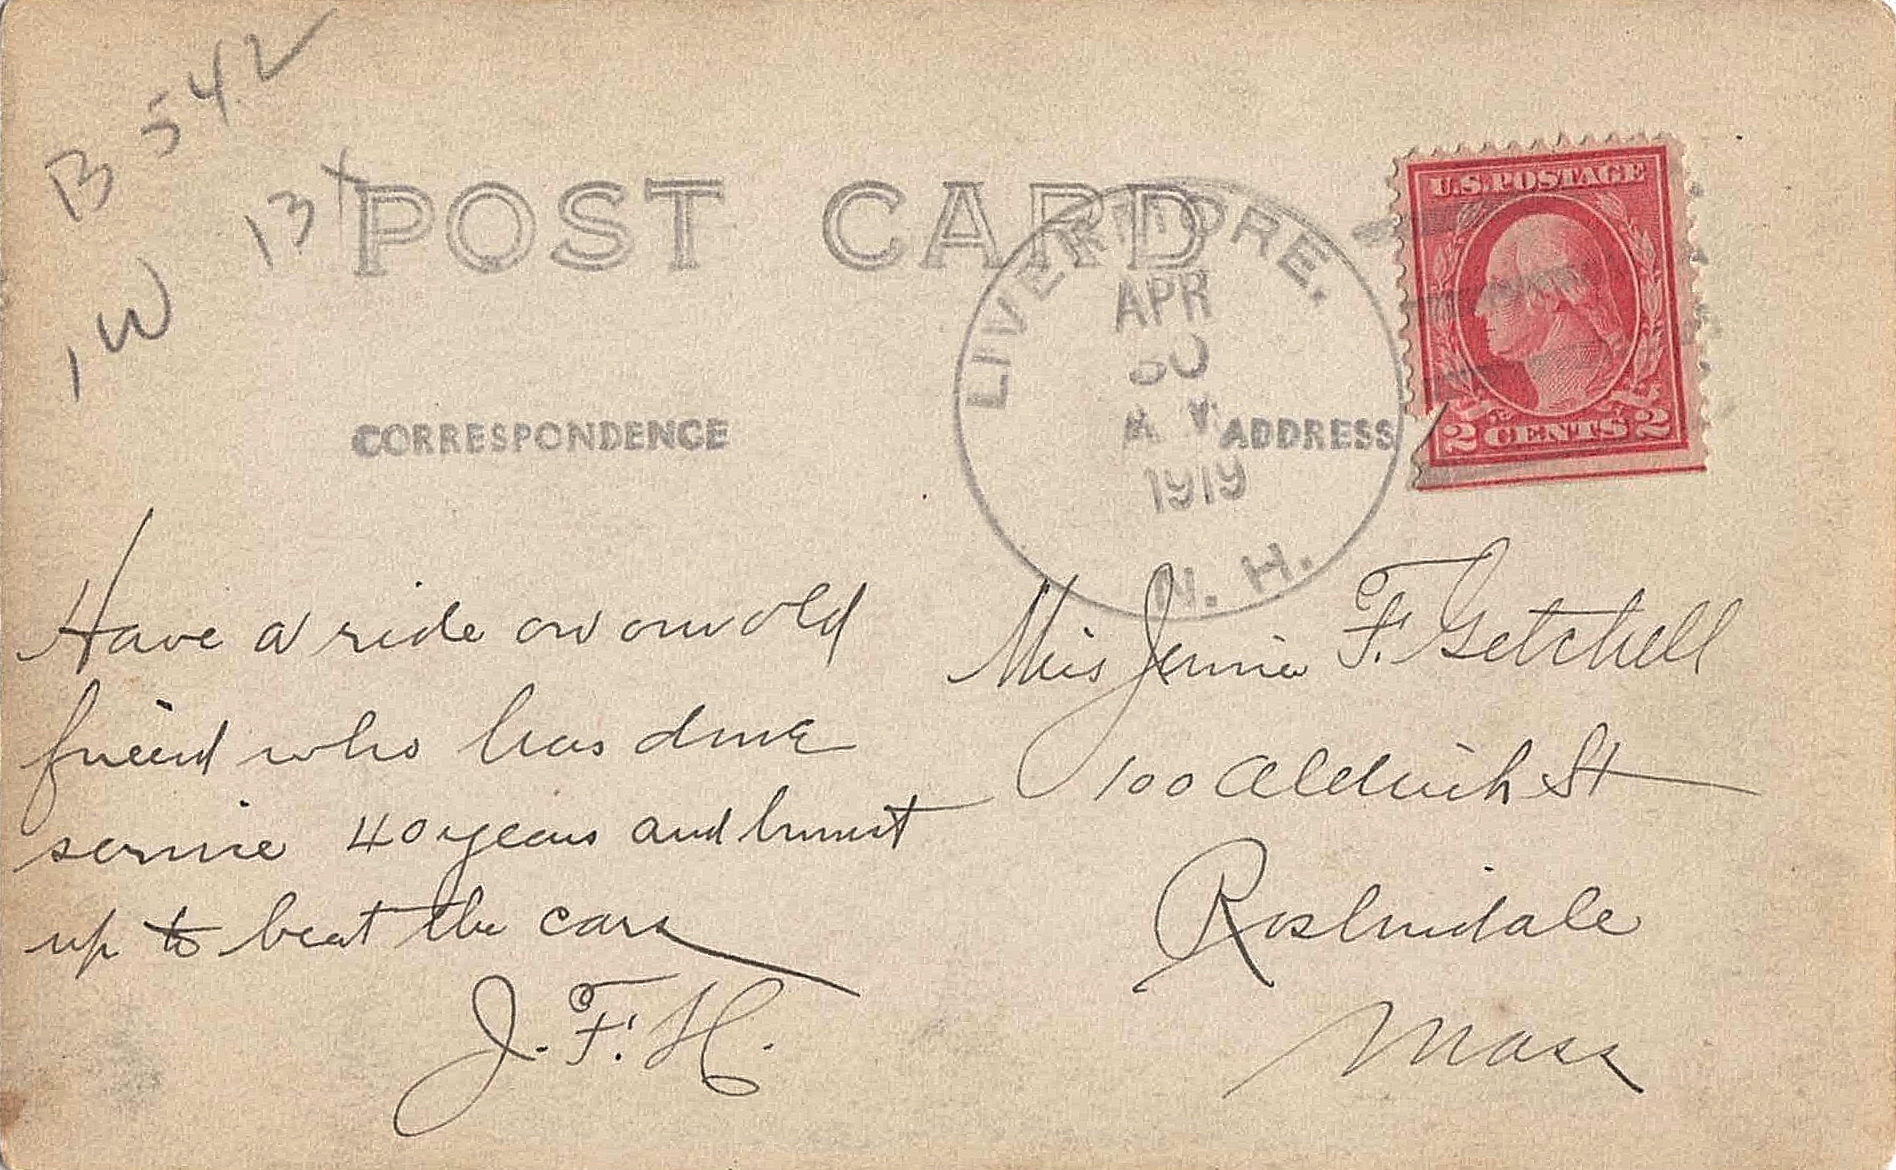 B 542
13x
1W
POST CARD
LIVERMORE.
APR
30
A M
1919
N. H.
U.S. POSTAGE
2 CENTS 2
CORRESPONDENCE
ADDRESS
Have a ride on our old
friend who has done
service 40 years and
up to beat the cars
J. F. H.
Miss Jennie F. Getchell
100 Aldrich St
Roslindale
Mass